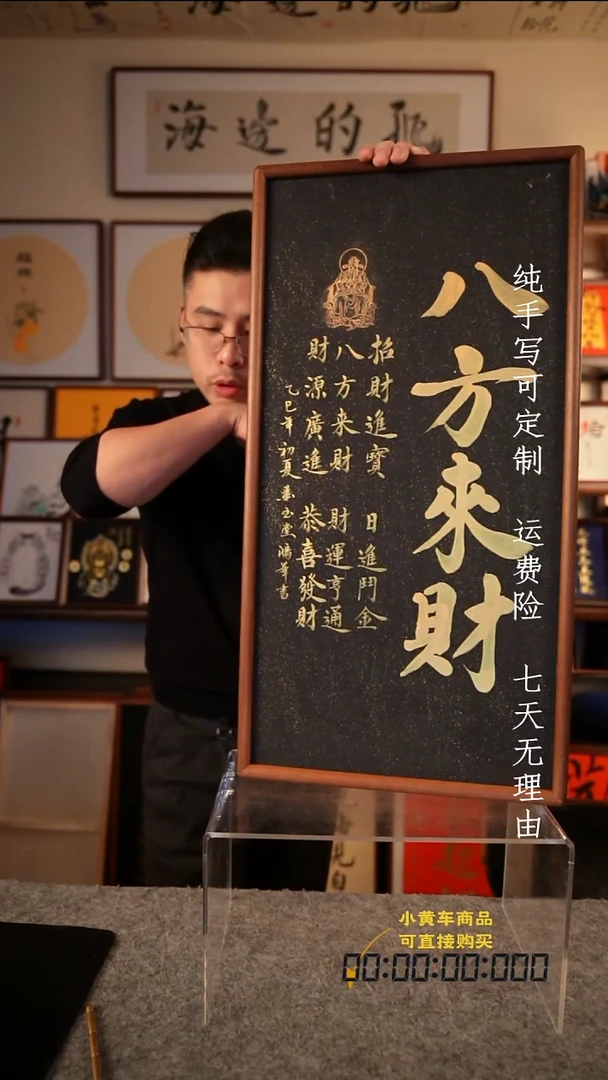 海边的
八方來財
招財進寶 日進鬥金
八方来財 財運亨通
財源廣進 恭喜發財
乙巳年初夏
纯手写可定制 运费险 七天无理由
小黄车商品
可直接购买
00:00:00:000